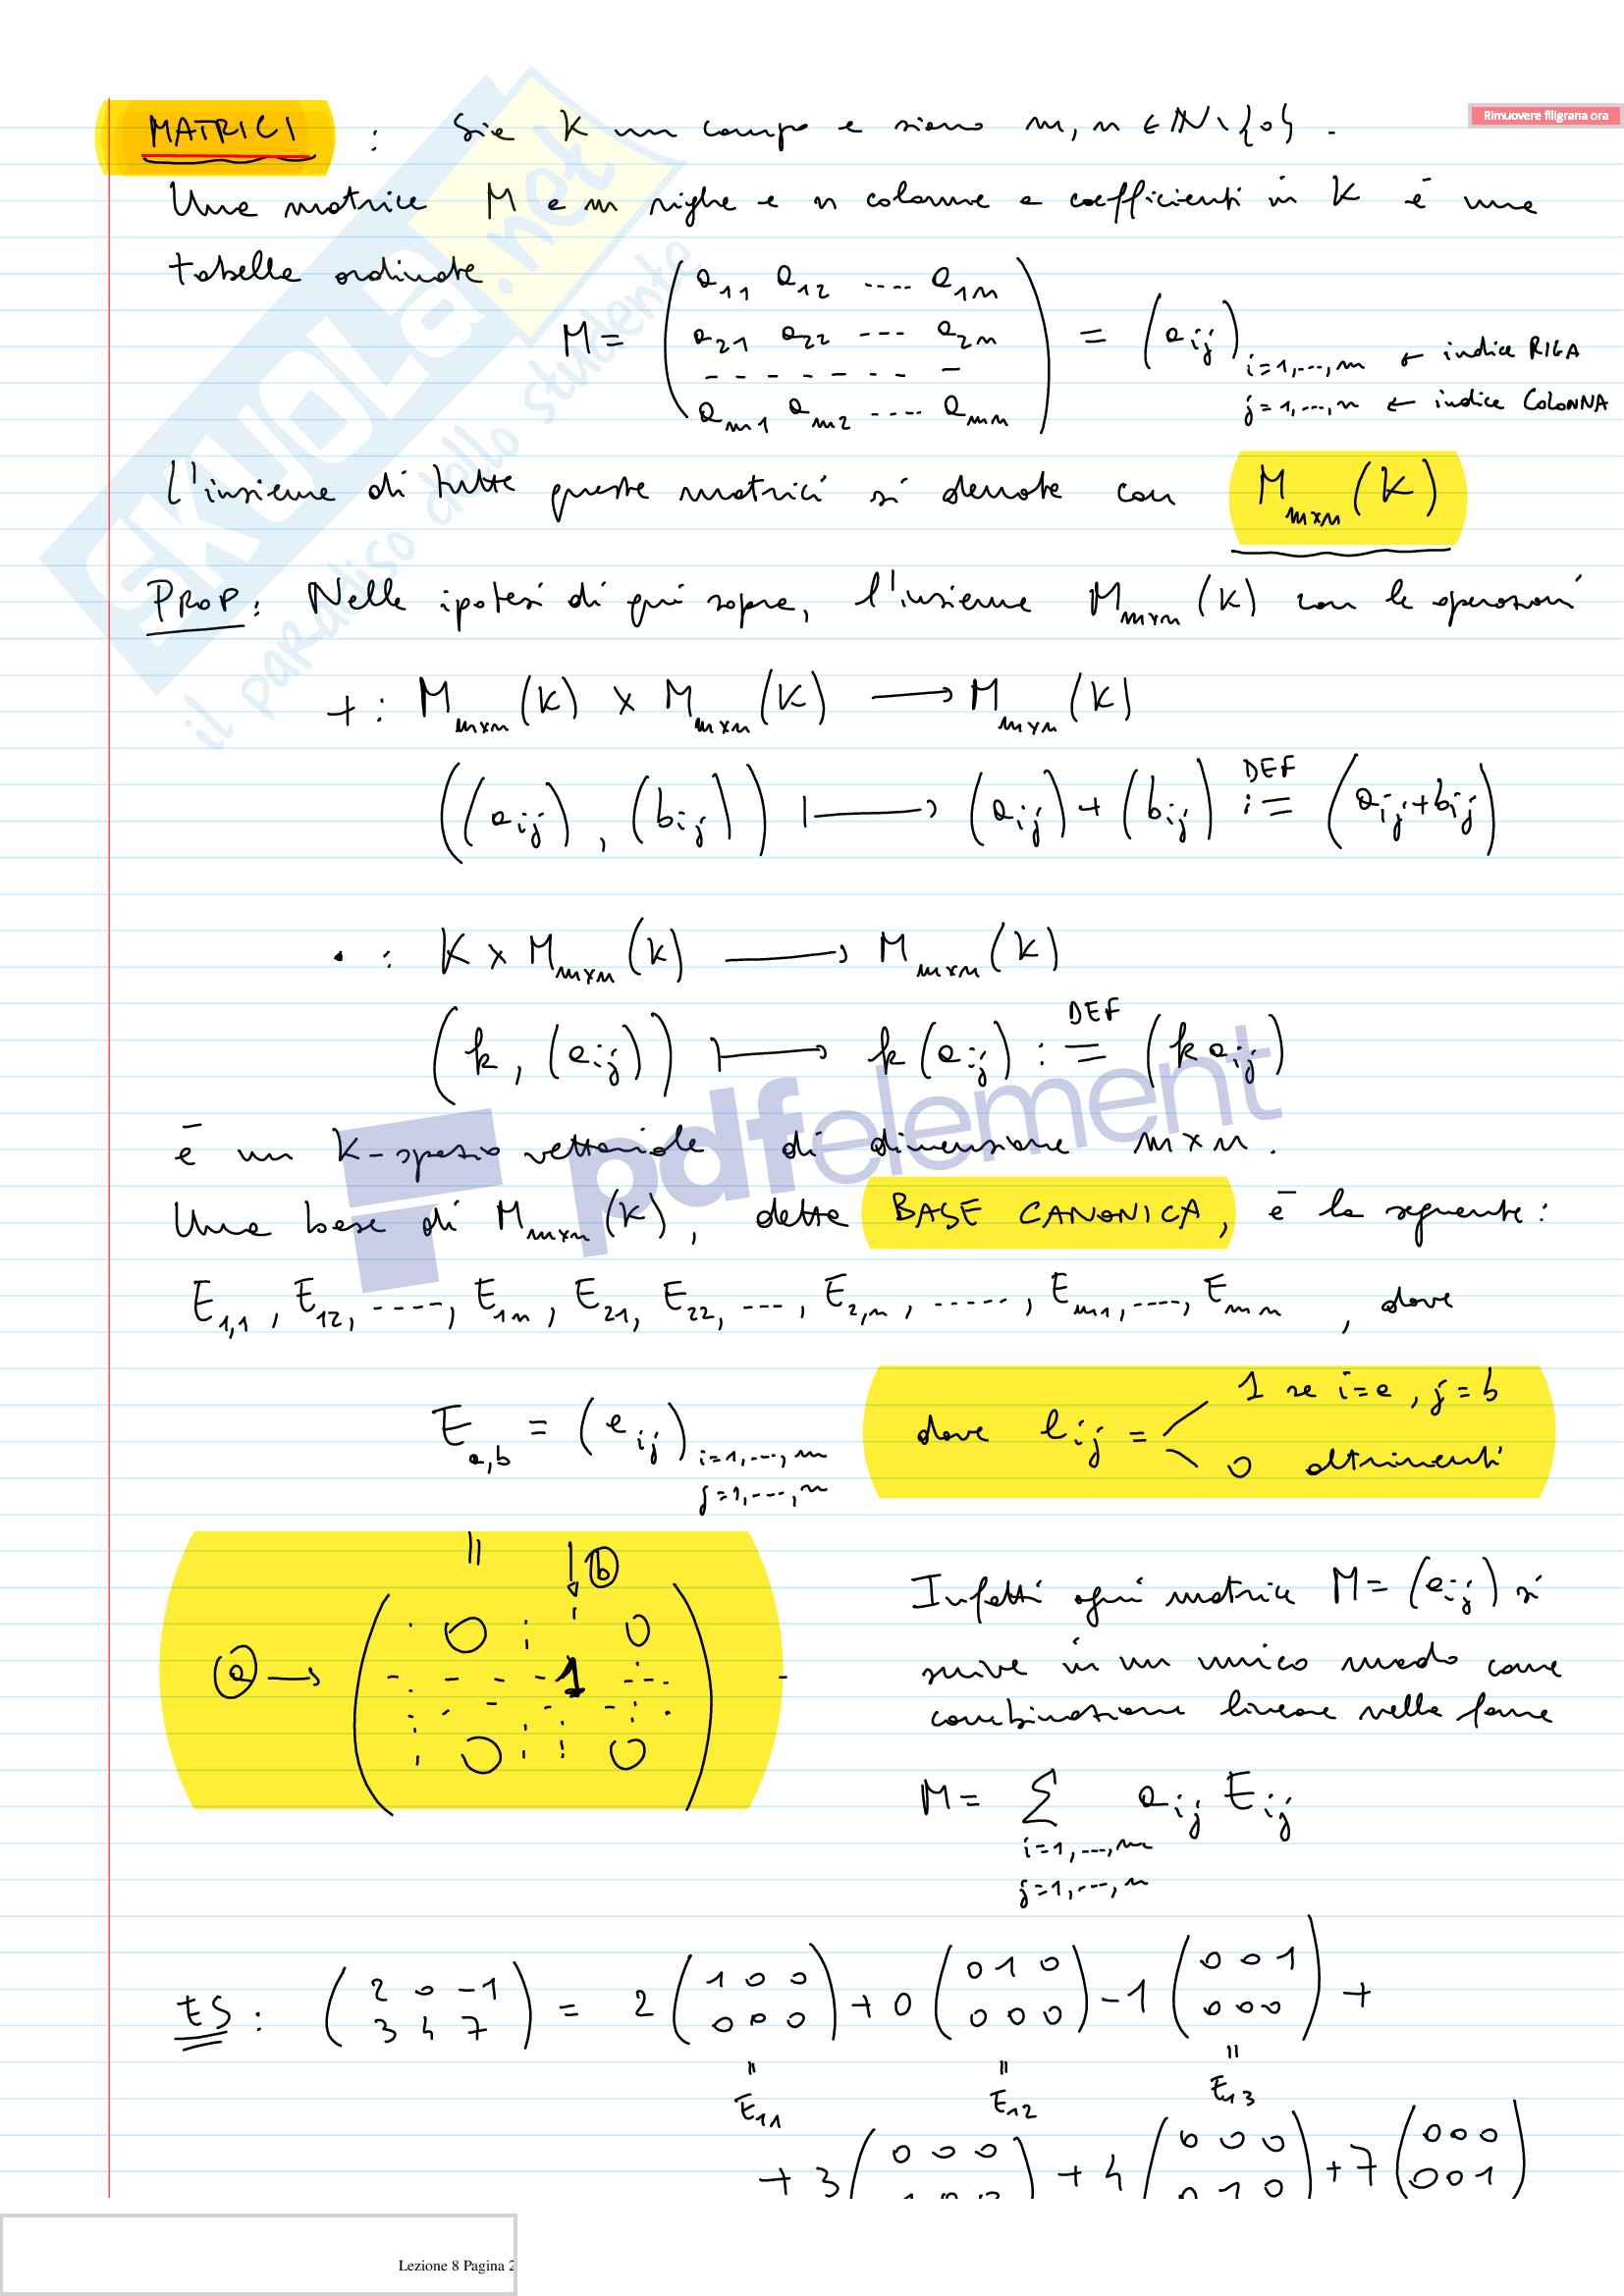 MATRICI : Sia K un campo e siano m, n ∈ ℕ \ {0}.
Rimuovere filigrana ora
Una matrice M a m righe e n colonne a coefficienti in K è una
tabella ordinata
M = ( a₁₁ a₁₂ .... a₁ₙ
a₂₁ a₂₂ --- a₂ₙ
- - - - - - - -
aₘ₁ aₘ₂ .... aₘₙ ) = (a_ij) i=1,...,m ← indice RIGA
j=1,...,n ← indice COLONNA
L'insieme di tutte queste matrici si denota con M_m×n (K)
PROP: Nelle ipotesi di qui sopra, l'insieme M_m×n (K) con le operazioni
+ : M_m×n (K) × M_m×n (K) ⟶ M_m×n (K)
((a_ij), (b_ij)) ⟼ (a_ij) + (b_ij) :=^DEF (a_ij + b_ij)
• : K × M_m×n (K) ⟶ M_m×n (K)
(k, (a_ij)) ⟼ k (a_ij) :=^DEF (k a_ij)
è un K-spazio vettoriale di dimensione m×n.
Una base di M_m×n (K), detta BASE CANONICA, è la seguente:
E₁,₁, E₁₂, ----, E₁ₙ, E₂₁, E₂₂, ---, E₂,ₙ, -----, Eₘ₁, ----, Eₘₙ, dove
E_a,b = (e_ij) i=1,...,m j=1,...,n dove e_ij = 1 se i=a, j=b
0 altrimenti
=
↓ b
a → ( 0 0
1
0 0 )
Infatti ogni matrice M = (a_ij) si
scrive in un unico modo come
combinazione lineare nella forma
M = Σ a_ij E_ij
i=1,...,m
j=1,...,n
ES: ( 2 0 -1
3 4 7 ) = 2 ( 1 0 0
0 0 0 ) + 0 ( 0 1 0
0 0 0 ) - 1 ( 0 0 1
0 0 0 ) +
= E₁₁ = E₁₂ = E₁₃
+ 3 ( 0 0 0
1 0 0 ) + 4 ( 0 0 0
0 1 0 ) + 7 ( 0 0 0
0 0 1 )
SKUOLA.net
il paradiso dello studento
pdfelement
Lezione 8 Pagina 2